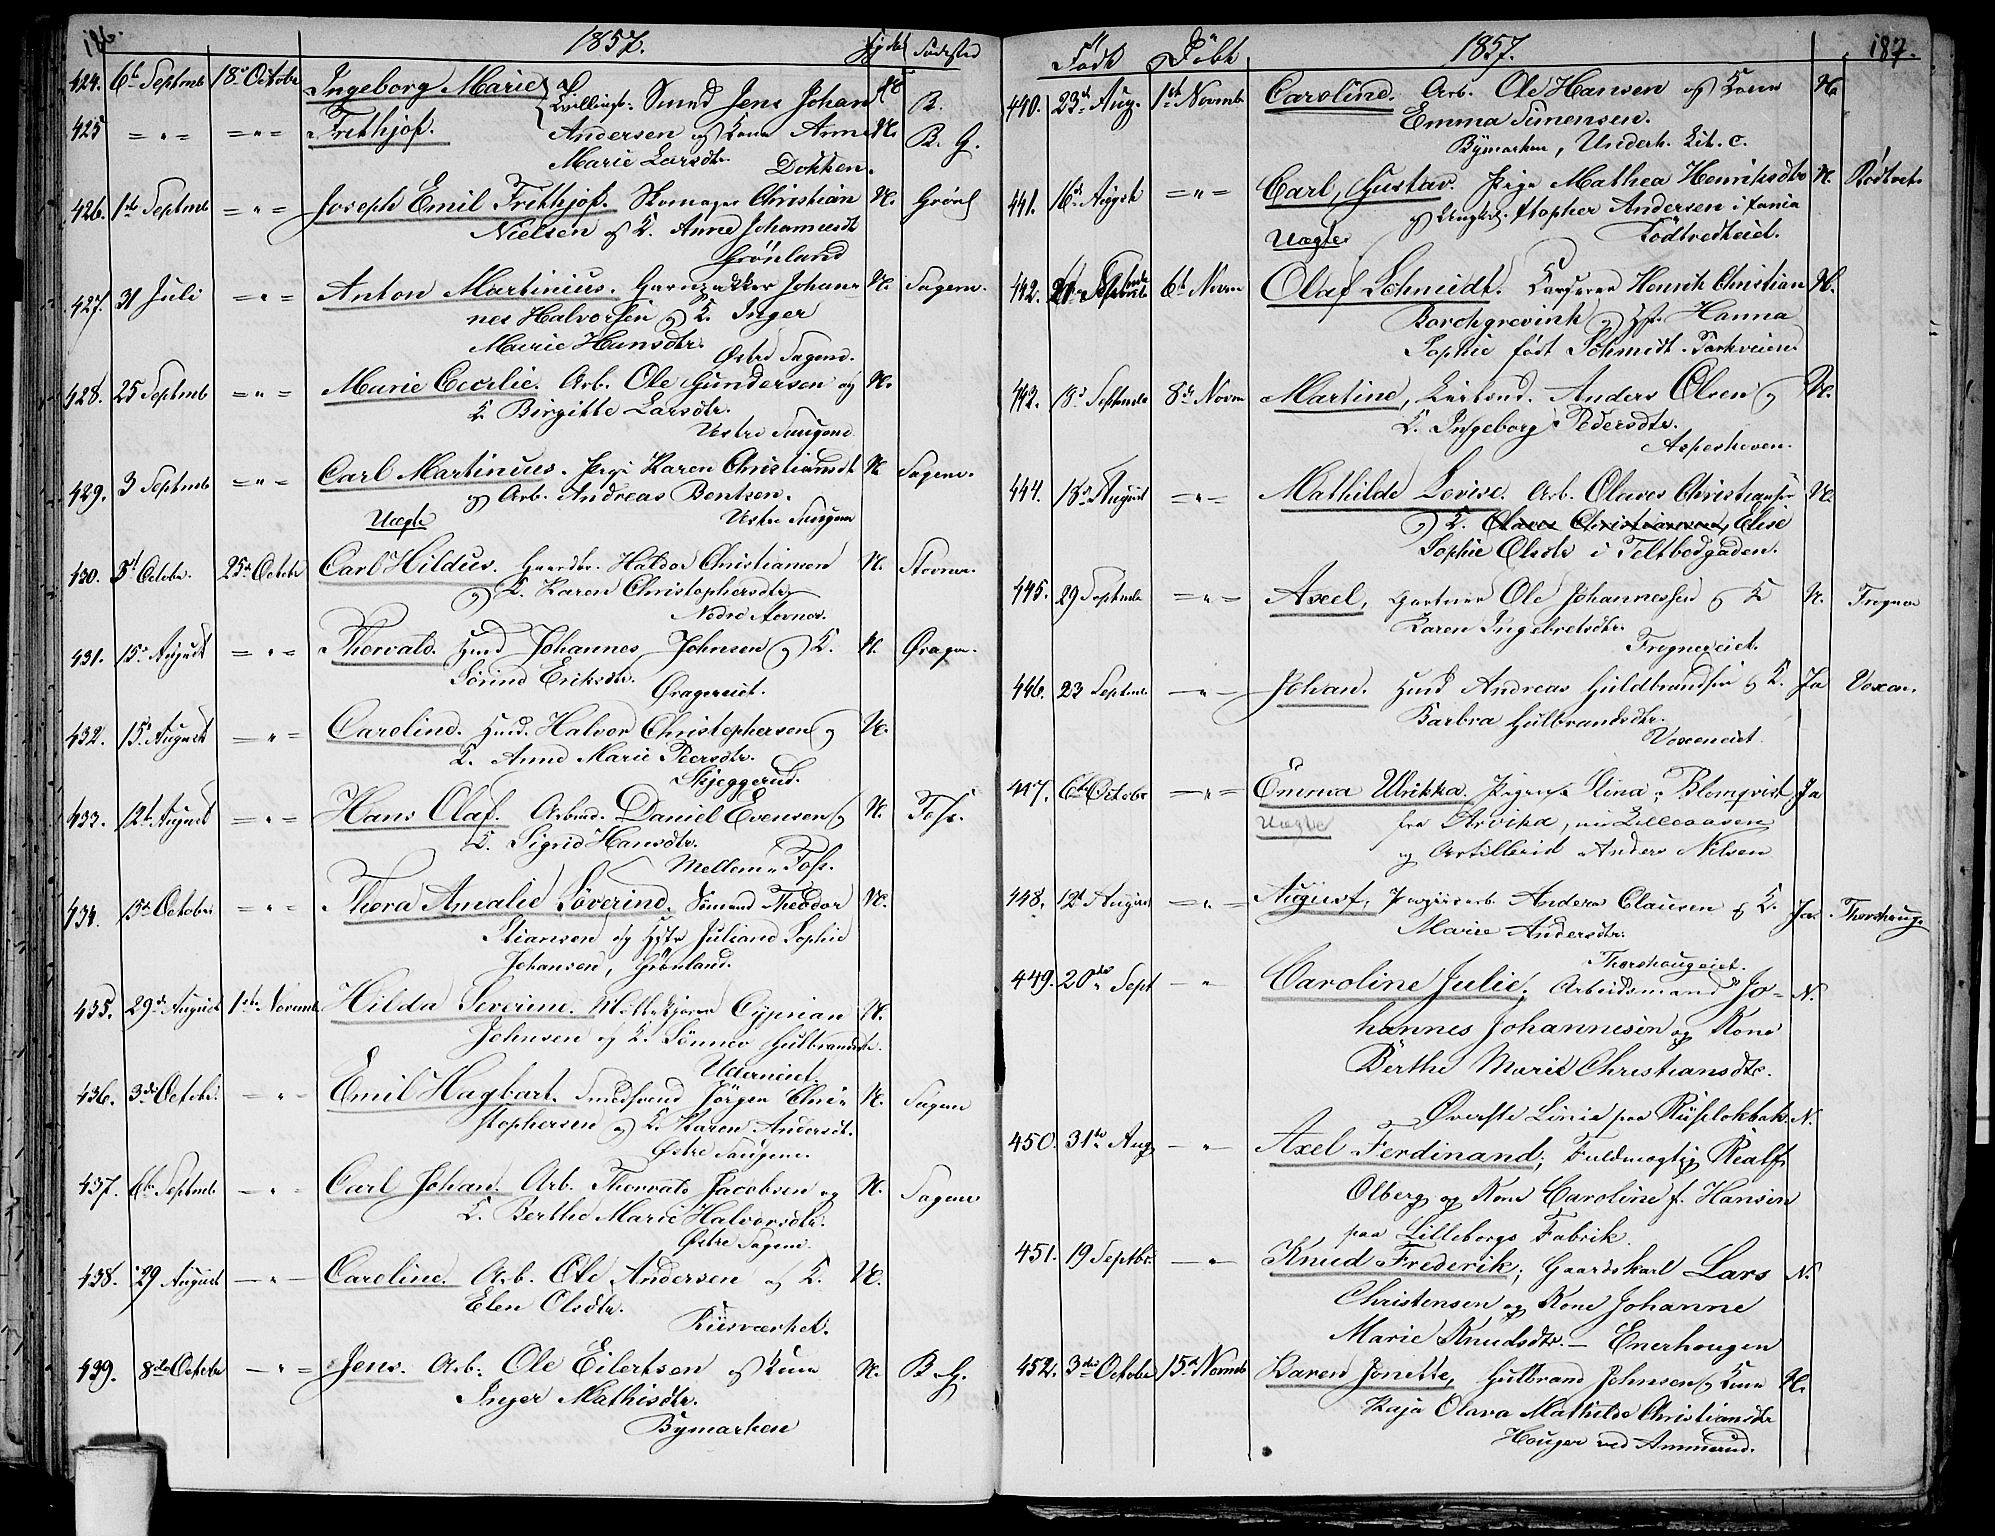 186.
1857.
Fødested
424. 6te Septmb 18de Octobr Ingeborg Marie Tvillinger. Smed Jens Johan N B.
425 = " = = " = Frithjof. Andersen og Kone Anne N. B. G.
Marie Larsdtr. Dokken.
426. 1ste Septmb = " = Joseph Emil Frithjof. Skomager Christian N. Grønl
Nielsen og K. Anne Johannesdt
Grönland
427. 31 Juli = " = Anton Martinius. Garnpakker Johan- N. Sagene.
nes Halvorsen og K. Inger
Marie Hansdtr. Østre Sagene.
428. 25 Septmb = " = Marie Cecilie. Arb. Ole Gundersen og N.
K. Birgitte Larsdtr.
Vestre Saugene
429. 3 Septmb = " = Carl Martinius. Pige Karen Christiansdt N Sagene.
og Arb. Andreas Bentsen.
Uægte Vestre Saugene
430. 5t Octobr. 25de Octobr Carl Hildus. Gaardbr. Haldor Christiansen N. Stovner.
og K. Karen Christophersdtr
Nedre Stovner.
431. 15de August = " = Thorvald. Husd Johannes Johnsen og K. N. Øragr.
Sörine Eriksdtr. Øragereiet.
432. 15. August = " = Caroline. Husd. Halvor Christophersen og N.
K. Anne Marie Peersdtr.
Skjeggerud.
433. 12te August = " = Hans Olaf. Arbmd. Daniel Evensen og N. Foss.
K. Sigrid Hansdtr.
Mellem Foss.
434. 15de October = " = Thora Amalie Severine. Sömand Theodor N.
Stiansen og Hstr Juliane Sophie
Johansen, Grönland.
435. 29de August 1ste Novemb Hilda Severine. Möllekjører Cyprian N.
Johnsen og K. Sönnev Gulbrandsdtr.
436. 3die Octobr. - " - Emil Hagbart. Smedsvend Jörgen Chri- N. Sagene
stophersen og K. Karen Andersdt.
Østre Saugene.
437. 6te Septmb - " - Carl Johan. Arb. Thorvald Jacobsen og N. Sagene
K. Berthe Marie Halvorsdtr.
Østre Sagene.
438. 29 August - " - Caroline. Arb. Ole Andersen og K. N.
Elen Olsdtr.
Riisværket.
439. 8de Octobr - " - Jens. Arb. Ole Eilertsen og Kone N. B. G.
Inger Mathisdtr.
Bymarken
187.
Födt Döbt 1857.
440. 23de Aug. 1ste Novmb Caroline. Arb. Ole Hansen og Kone N.
Emma Simensen.
Bymarken, Underh. Lit. C.
441. 16de August = " = Carl Gustav. Pige Mathea Henriksdtr N. Rödtvet.
og Ungkl. Stopher Andersen
Uægte Rödtvedteiet.
442. 6te Novm Olaf Schmidt. Kasserer Henrik Christian N.
Borchgrevink og Hst. Hanna
Sophie födt Schmidt. Parkveien.
443. 13de Septmb 8de Novm Martine, Anders Olsen og N.
K. Ingeborg Pedersdtr.
Aspeshoven.
444. 18de August = " = Mathilde Lovise. Arb. Olaves Christiansen N.
og K. Olava Christianna, Elise
Sophie Olsdtr i Teltbodgaden.
445. 29 Septmb = " = Axel, Gartner Ole Johannessen og K N. Frogner
Karen Ingebretsdtr.
Frognereiet.
446. 23 Septmb. - " - Johan. Husd Andreas Guldbrandsen og K. Ja Voxen.
Barbra Gulbrandsdtr.
Voxeneiet.
447. 6te Octobr = " = Emma Ulrikka. Pigen Stina Blomqvist Ja
Uægte fra Arvika, nu Lilleaasen
og Artillerist Anders Nilsen
448. 12te August = " = August, Anders Clausen og K. Ja. Thorshaug.
Marie Andersdtr.
Thorshougeiet.
449. 20de Sept - " Caroline Julie; Arbeidsmand Jo- N.
hannes Johannesen og Kone
Berthe Marie Christiansdtr.
Øverste Linie paa Riiselokbak. N.
450. 31te Aug - " - Axel Ferdinand; Fuldmægtig Realf
Olberg og Kone Caroline f. Hansen
paa Lilleborgs Fabrik.
451. 19 Septbr. - " - Knud Frederik; Gaardskarl Lars N.
Christensen og Kone Johanne
Marie Knudsdtr. - Enerhougen
452. 3die Octobr 15de Novmb Karen Jonette, Gulbrand Johnsen og Kone N.
Kaja Olava Mathilde Christiansdtr
Houger ved Ammerud.